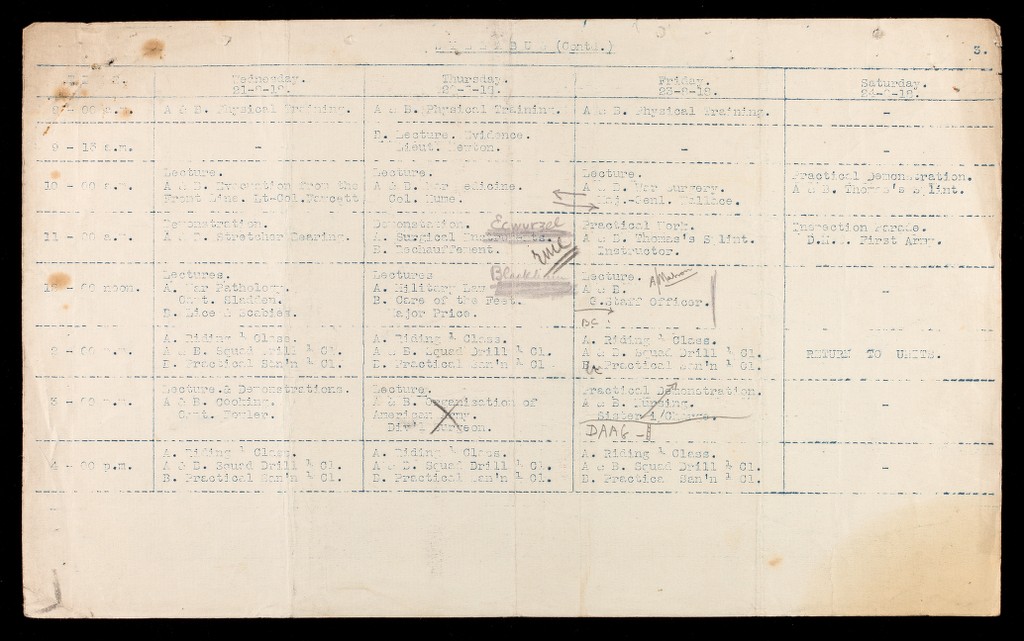 SYLLABUS (Contd.)
3.
Wednesday. Thursday. Friday. Saturday.
21-8-18. 23-8-18. 24-8-18.
00 a.m. A & B. Physical Training. A & B. Physical Training. A & B. Physical Training. -
B. Lecture. Evidence.
9 - 15 a.m. - Lieut. Newton. - -
Lecture. Lecture. Lecture. Practical Demonstration.
10 - 00 a.m. A & B. Evacuation from the A & B. War Medicine. A & B. War Surgery. A & B. Thomas's Splint.
Front Line. Lt-Col. Fawcett Col. Hume. Maj.-Genl. Wallace.
Demonstration. Demonstation. Ecwurzel Practical Work. Inspection Parade.
11 - 00 a.m. A & B. Stretcher Bearing. A. Surgical A & B. Thomas's Splint. D.M.S. First Army.
B. Rechauffement. Instructor.
Lectures. Lectures Lecture.
12 - 00 noon. A. War Pathology. A. Military Law A & B. -
Capt. Sladden. B. Care of the Feet. G.Staff Officer.
B. Lice & Scabies. Major Price.
A. Riding ½ Class. A. Riding ½ Class. A. Riding ½ Class.
2 - 00 p.m. A & B. Squad Drill ½ Cl. A & B. Squad Drill ½ Cl. A & B. Squad Drill ½ Cl. RETURN TO UNITS.
B. Practical San'n ½ Cl. B. Practical San'n ½ Cl. B. Practical San'n ½ Cl.
Lecture & Demonstrations. Lecture. Practical Demonstration.
3 - 00 p.m. A & B. Cooking. A & B. Organization of A & B. Nursing. -
Capt. American Army. Sister i/Charge.
Div'l Surgeon. DAAG
A. Riding ½ Class. A. Riding ½ Class. A. Riding ½ Class.
4 - 00 p.m. A & B. Squad Drill ½ Cl. A & B. Squad Drill ½ Cl. A & B. Squad Drill ½ Cl. -
B. Practical San'n ½ Cl. B. Practical San'n ½ Cl. B. Practical San'n ½ Cl.